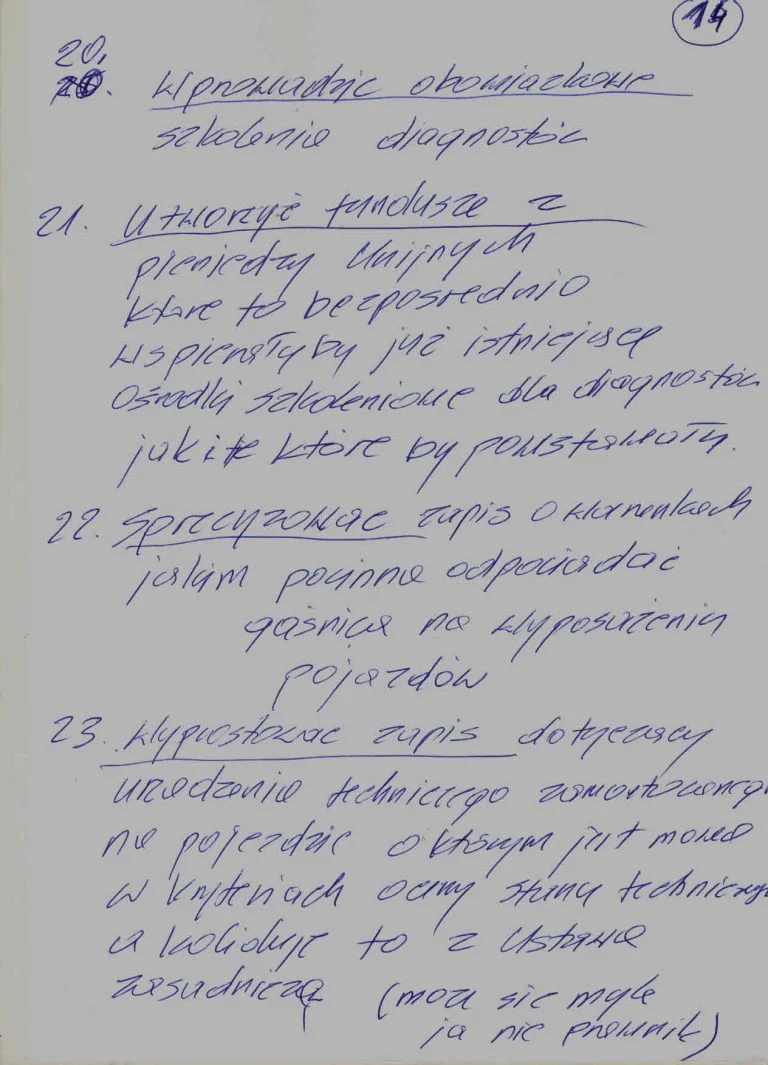 14
20.
20. Wprowadzic obowiazkowe
szkolenia diagnostów
21. Utworzyć fundusze z
pieniedzy Unijnych
które to bezposrednio
wspierałyby już istniejące
Ośrodki szkoleniowe dla diagnostów
jak i te które by powstawały.
22. Sprecyzowac zapis o warunkach
jakim powinna odpowiadać
gaśnica na wyposażeniu
pojazdów
23. Wyprostowac zapis dotyczący
urządzenia technicznego zamontowanego
na pojezdzie o którym jest mowa
w kryteriach oceny stanu technicznego
a koliduje to z Ustawa
zasadniczą (moze sie myle
ja nie prawnik)